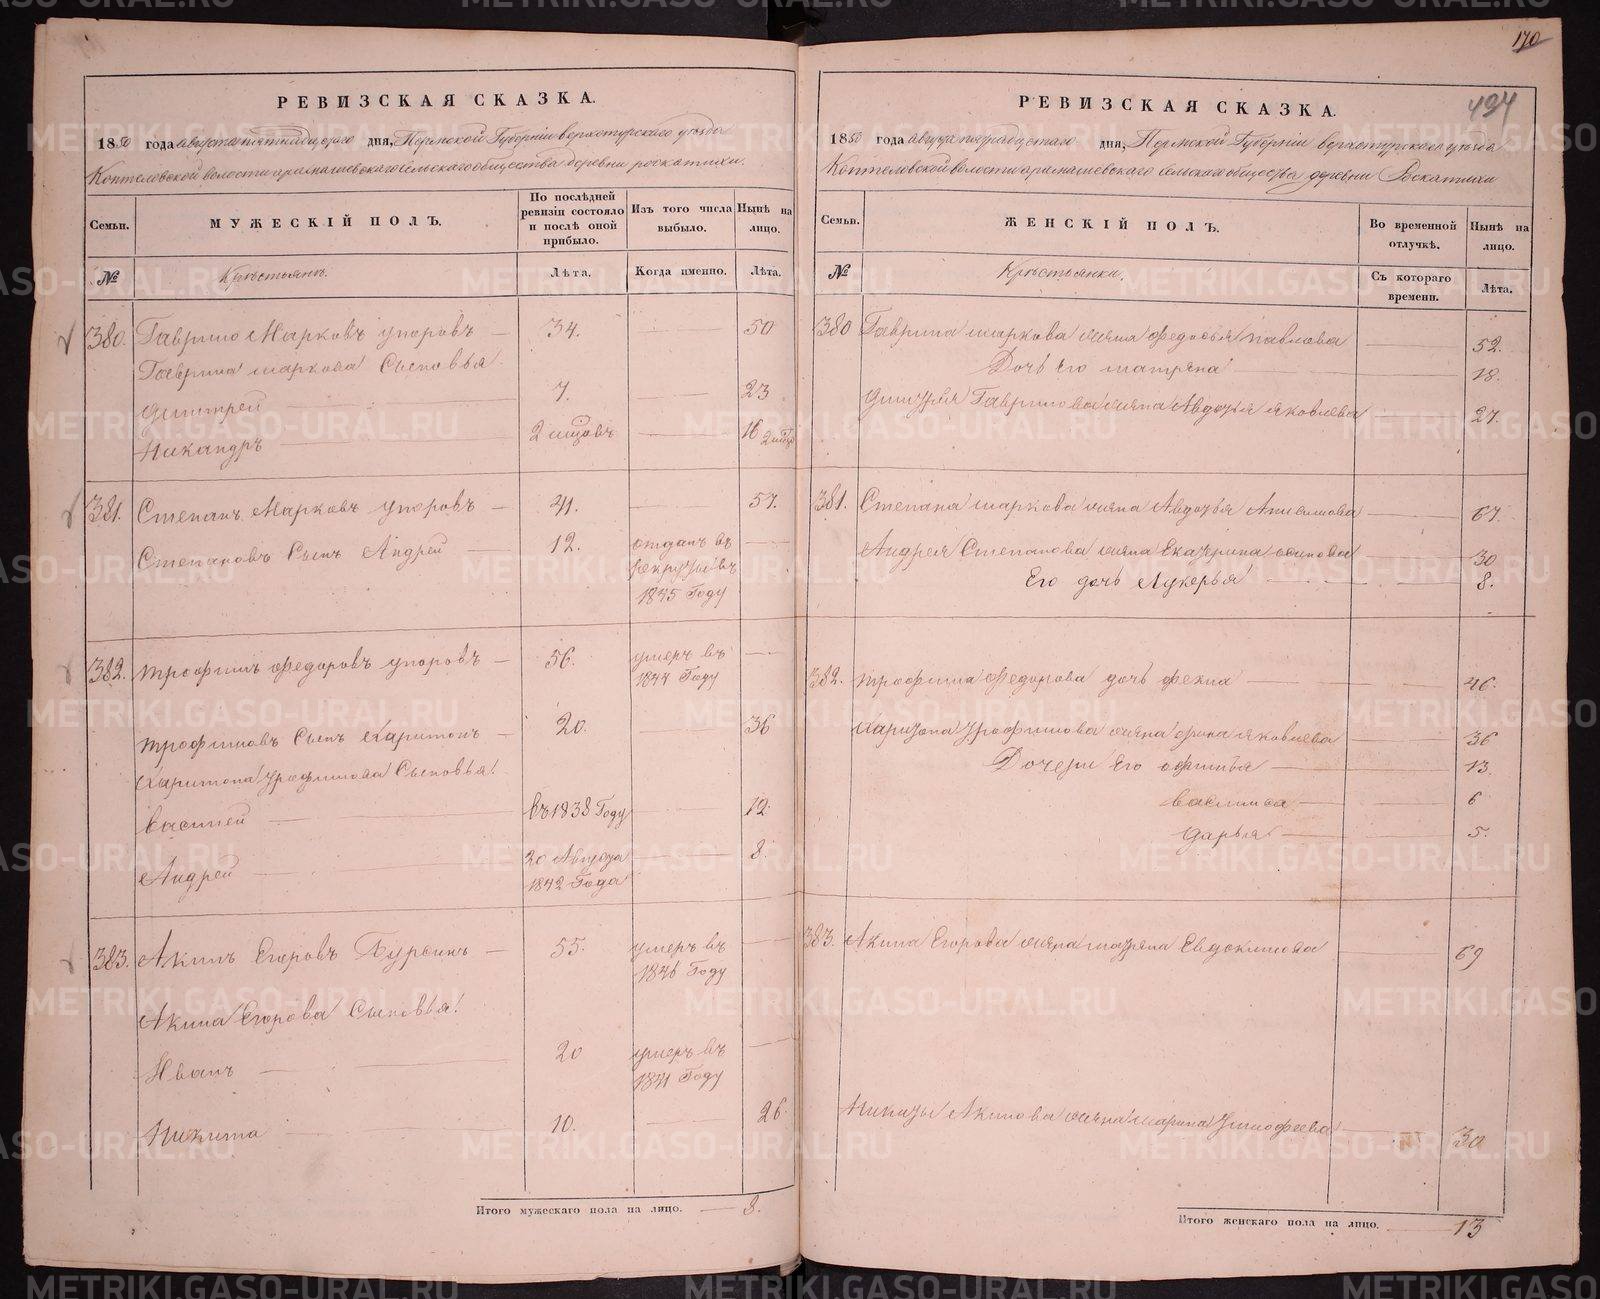 170
494
РЕВИЗСКАЯ СКАЗКА.
1850 года августа пятнадцатаго дня, Пермской Губерніи верхотурскаго уезда
Коптеловской волости арамашевскаго сельскаго общества деревни роскатихи.
Семьи.
МУЖЕСКІЙ ПОЛЪ.
По послѣдней ревизіи состояло и послѣ оной прибыло.
Изъ того числа выбыло.
Нынѣ на лицо.
№
Крестьянъ.
Лѣта.
Когда именно.
Лѣта.
380. Гаврило Марковъ упоровъ — 34. — 50
Гаврила маркова Сыновья
Дмитрей — 7. — 23
Никандръ — 2 мцовъ — 16 2 мцо
381. Степанъ Марковъ упоровъ — 41. — 57.
Степановъ Сынъ Андрей — 12. отданъ въ рекруты въ 1845 Году —
382. трофимъ Федоровъ упоровъ — 56. умеръ въ 1844 Году —
трофимовъ Сынъ Харитонъ — 20. — 36
Харитона трофимова Сыновья:
Василей — въ 1838 Году — 12
Андрей — 20 Августа 1842 Года — 8.
383. Акимъ Егоровъ Бурсинъ — 55. умеръ въ 1846 Году —
Акима Егорова Сыновья:
Иванъ — 20 умеръ въ 1841 Году —
Никита — 10. — 26
Итого мужескаго пола на лицо. — 8.
РЕВИЗСКАЯ СКАЗКА.
1850 года августа пятнадцатаго дня, Пермской Губерніи верхотурскаго уезда
Коптеловской волости арамашевскаго сельскаго общества деревни Роскатихи
Семьи.
ЖЕНСКІЙ ПОЛЪ.
Во временной отлучкѣ.
Нынѣ на лицо.
№
Крестьянки.
Съ котораго времени.
Лѣта.
380 Гаврила маркова жена федосья павлова — 52.
Дочь Его матрена — 18.
Дмитрия Гаврилова жена Авдотья яковлева — 27.
381. Степана маркова жена Авдотья Анисимова — 67.
Андрея Степанова жена Екатерина осипова — 30
Его дочь Лукерья — 8.
382. трофима Федорова дочь фекла — 46.
Харитона трофимова жена орина яковлева — 36
Дочери Его офимья — 13.
василиса — 6
дарья — 5.
383. Акима Егорова жена матрена Евдокимова — 69
Никиты Акимова жена марина тимофеева — 30
Итого женскаго пола на лицо. — 13
METRIKI.GASO-URAL.RU